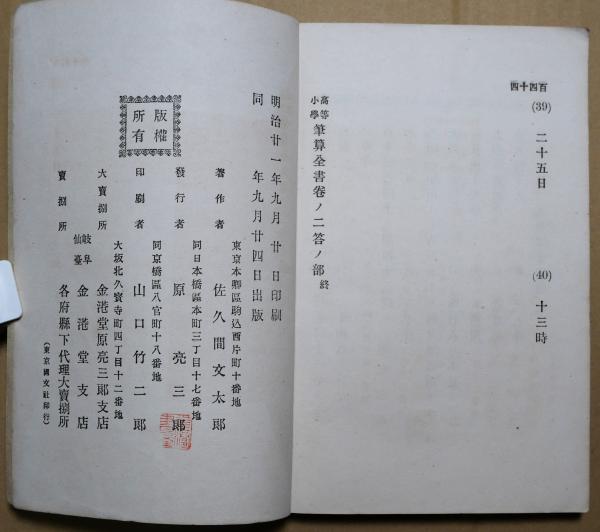 百四十四
(39) 二十五日
(40) 十三時
高等小學筆算全書卷ノ二答ノ部終
明治廿一年九月廿日印刷
同年九月廿四日出版
版權所有
東京本鄕區駒込西片町十番地
著作者 佐久間文太郎
同日本橋區本町三丁目十七番地
發行者 原亮三郎
同京橋區八官町十八番地
印刷者 山口竹二郎
大坂北久寶寺町四丁目十二番地
大賣捌所 金港堂原亮三郎支店
岐阜仙臺 金港堂支店
賣捌所 各府縣下代理大賣捌所
(東京國文社印行)